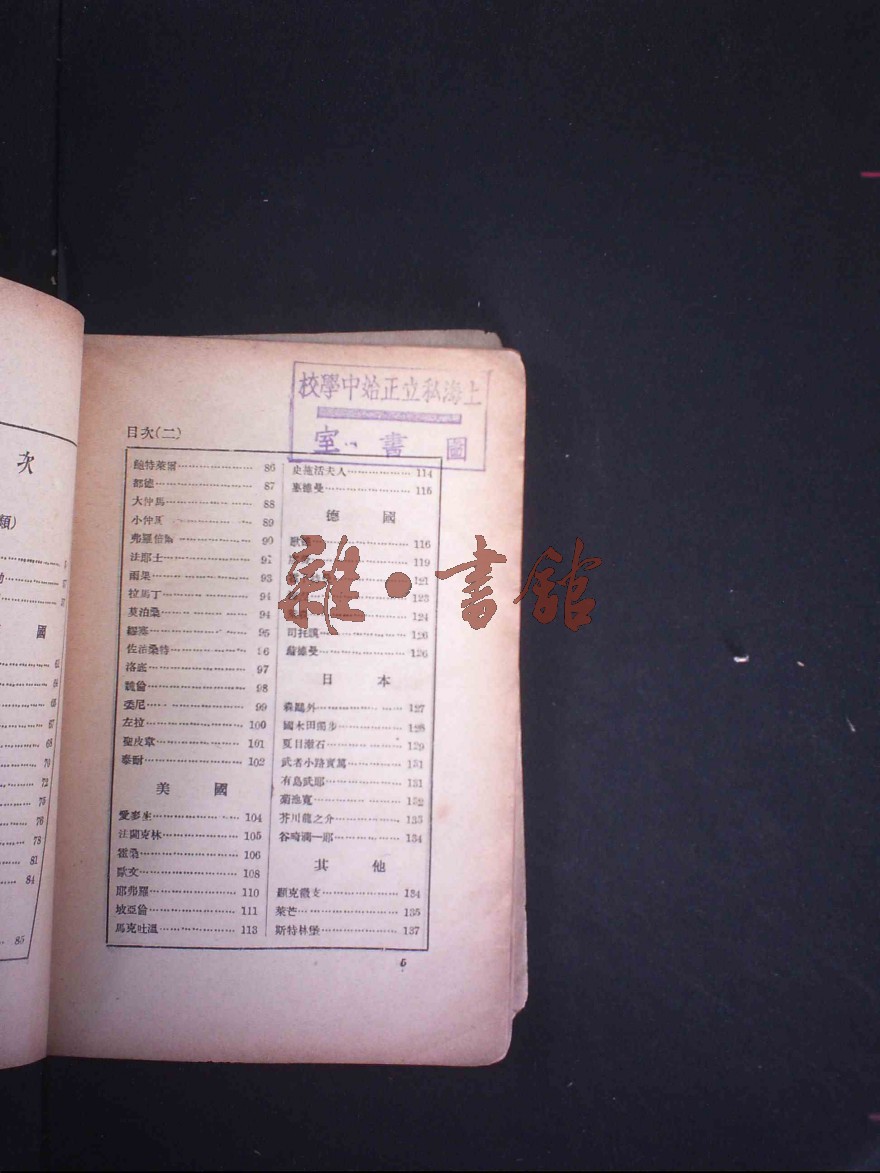 上海私立正始中學校
圖書室
目次(二)
鮑特萊爾 86
都德 87
大仲馬 88
小仲馬 89
弗羅倍爾 90
法郎士
雨果 93
拉馬丁 94
莫泊桑 94
繆塞 95
佐治桑特
洛底 97
魏倫 98
委尼 99
左拉 100
聖皮韋 101
泰耐 102
美國
愛麥生 104
法蘭克林 105
霍桑 106
歐文 108
耶弗羅 110
坡亞倫 111
馬克吐溫 113
史拖活夫人 114
塞德曼 115
德國
歌德 116
119
121
123
124
司托謨 126
蘇德曼 126
日本
森鷗外 127
國木田獨步 128
夏目漱石 129
武者小路實篤 131
有島武郎 131
菊池寬 132
芥川龍之介 133
谷崎潤一郎 134
其他
顯克微支 134
萊芒 135
斯特林堡 137
5
雜·書館
次
類)
國
67
68
70
72
75
76
78
81
84
85